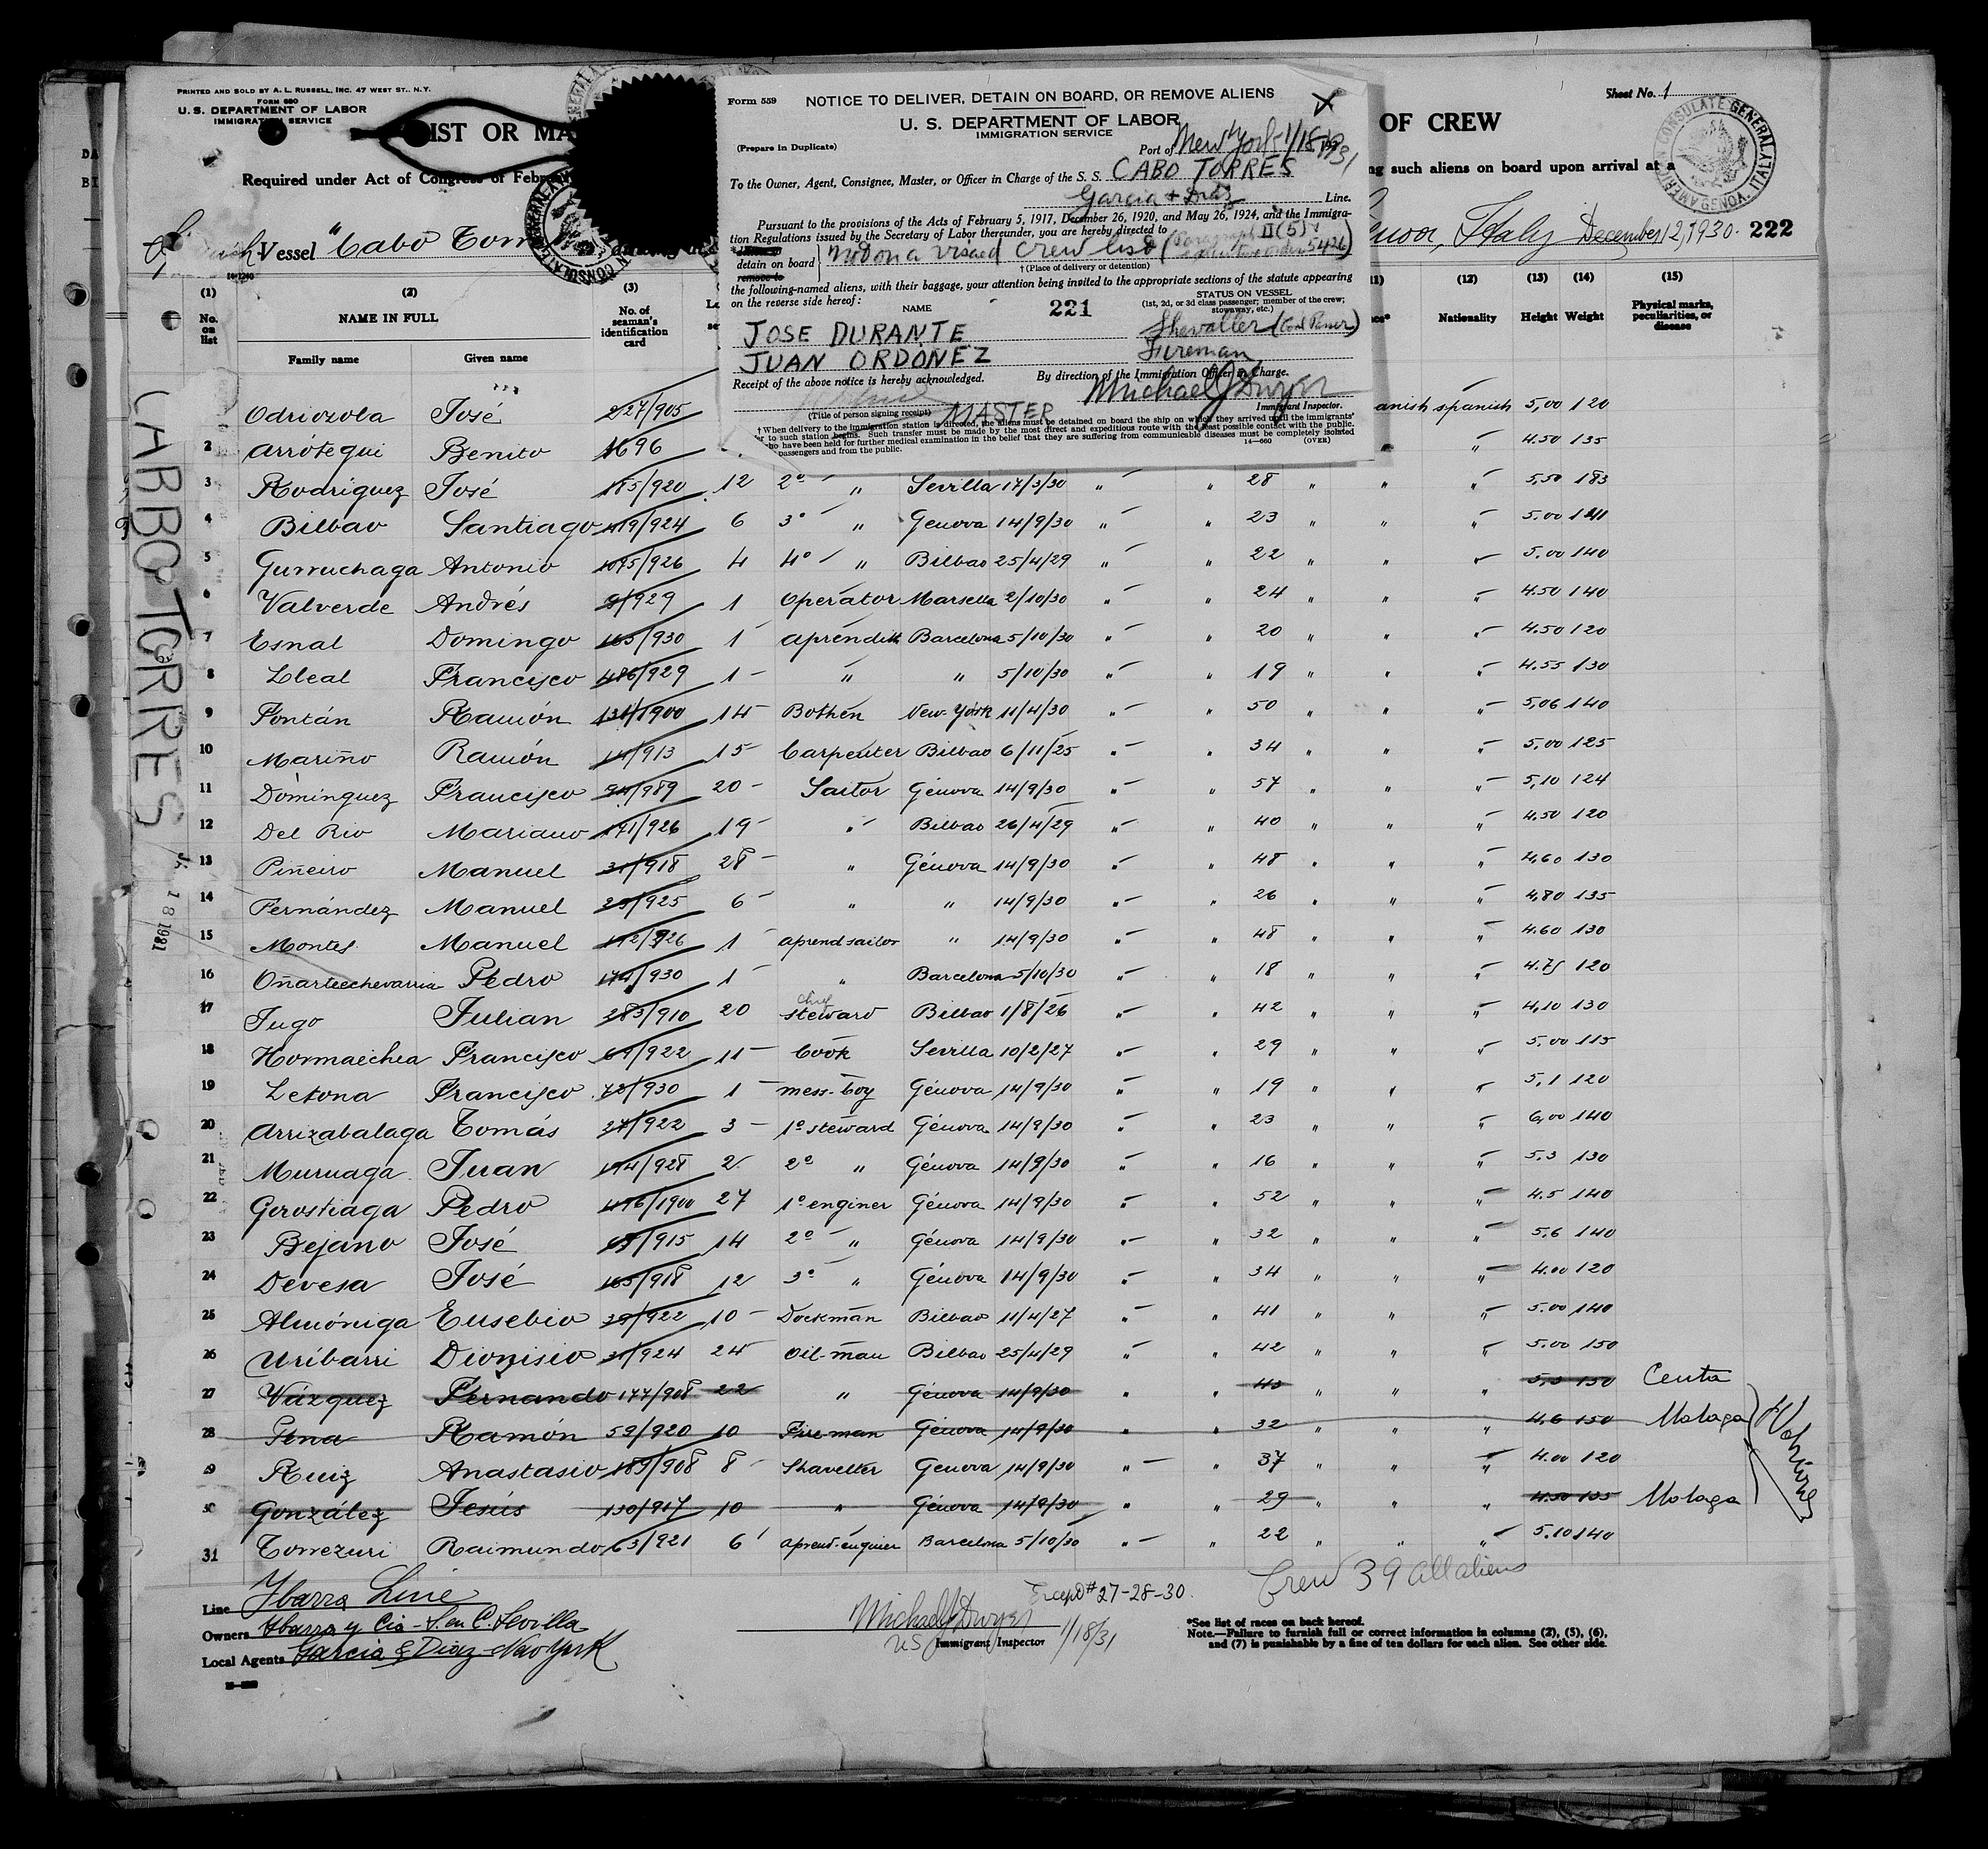 PRINTED AND SOLD BY A. L. RUSSELL, INC. 47 WEST ST., N.Y.
FORM 680
U. S. DEPARTMENT OF LABOR
IMMIGRATION SERVICE
Sheet No. 1
IST OR MA
OF CREW
Required under Act of Congress of Februar
ng such aliens on board upon arrival at a
Vessel "Cabo Torr
Italy December 12, 1930. 222
Form 559
NOTICE TO DELIVER, DETAIN ON BOARD, OR REMOVE ALIENS
U. S. DEPARTMENT OF LABOR
IMMIGRATION SERVICE
(Prepare in Duplicate)
Port of New York 1/18/1931
To the Owner, Agent, Consignee, Master, or Officer in Charge of the S. S. CABO TORRES
Garcia + Diaz Line.
Pursuant to the provisions of the Acts of February 5, 1917, December 26, 1920, and May 26, 1924, and the Immigra-
tion Regulations issued by the Secretary of Labor thereunder, you are hereby directed to
detain on board
remove to
not on a visaed crew list (Paragraph II (5) Executive Order 5426)
† (Place of delivery or detention)
the following-named aliens, with their baggage, your attention being invited to the appropriate sections of the statute appearing
on the reverse side hereof:
NAME
221
STATUS ON VESSEL
(1st, 2d, or 3d class passenger; member of the crew; stowaway, etc.)
JOSE DURANTE Shavaller (Coal Passer)
JUAN ORDONEZ Fireman
Receipt of the above notice is hereby acknowledged.
By direction of the Immigration Officer in Charge.
Michael J Dwyer
Immigrant Inspector.
(Title of person signing receipt) MASTER
† When delivery to the immigration station is directed, the aliens must be detained on board the ship on which they arrived until the immigrants'
to such station begins. Such transfer must be made by the most direct and expeditious route with the least possible contact with the public.
ho have been held for further medical examination in the belief that they are suffering from communicable diseases must be completely isolated
passengers and from the public.
14—660 (OVER)
(1) (2) (3) (12) (13) (14) (15)
No. on list
NAME IN FULL
Family name Given name
No. of seaman's identification card
Nationality Height Weight
Physical marks, peculiarities, or disease
Odriozola José 227/905 anish spanish 5,00 120
2 Arrótegui Benito 1696 " 4.50 135
3 Rodriguez José 185/920 12 2º " Sevilla 17/3/30 " " 28 " " " 5,50 183
4 Bilbao Santiago 419/924 6 3º " Genova 14/9/30 " " 23 " " " 5.00 141
5 Gurruchaga Antonio 1095/926 4 4º " Bilbao 25/4/29 " " 22 " " " 5.00 140
6 Valverde Andrés 9/929 1 Operator Marsella 2/10/30 " " 24 " " " 4.50 140
7 Esnal Domingo 165/930 1 aprendik Barcelona 5/10/30 " " 20 " " " 4.50 120
8 Lleal Francisco 486/929 1 " " 5/10/30 " " 19 " " " 4.55 130
9 Fontán Ramón 131/1900 14 Bothen New-York 11/4/30 " " 50 " " " 5,06 140
10 Mariño Ramón 14/913 15 Carpenter Bilbao 6/11/25 " " 34 " " " 5,00 125
11 Dominguez Francisco 94/989 20 Sailor Génova 14/9/30 " " 57 " " " 5,10 124
12 Del Rio Mariano 171/926 19 " Bilbao 26/4/29 " " 40 " " " 4.50 120
13 Piñeiro Manuel 31/918 28 " Génova 14/9/30 " " 48 " " " 4,60 130
14 Fernández Manuel 25/925 6 " " 14/9/30 " " 26 " " " 4,80 135
15 Montes Manuel 112/926 1 aprend sailor " 14/9/30 " " 48 " " " 4.60 130
16 Oñarteechevarria Pedro 174/930 1 " Barcelona 5/10/30 " " 18 " " " 4.75 120
17 Jugo Julian 283/910 20 chief steward Bilbao 1/8/26 " " 42 " " " 4,10 130
18 Hormaechea Francisco 69/922 11 Cook Sevilla 10/2/27 " " 29 " " " 5.00 115
19 Letona Francisco 78/930 1 mess-boy Génova 14/9/30 " " 19 " " " 5,1 120
20 Arrizabalaga Tomás 27/922 3 1º steward Génova 14/9/30 " " 23 " " " 6,00 140
21 Muruaga Juan 194/928 2 2º " Génova 14/9/30 " " 16 " " " 5.3 130
22 Gorostiaga Pedro 496/1900 27 1º enginer Génova 14/9/30 " " 52 " " " 4.5 140
23 Bejano José 65/915 14 2º " Génova 14/9/30 " " 32 " " " 5.6 140
24 Devesa José 165/918 12 3º " Génova 14/9/30 " " 34 " " " 4.00 120
25 Almóniga Eusebio 39/922 10 Dockman Bilbao 11/4/27 " " 41 " " " 5.00 140
26 Uribarri Dionisio 31/924 24 Oil-man Bilbao 25/4/29 " " 42 " " " 5.00 150
27 Vázquez Fernando 177/908 22 " Génova 14/9/30 " " 43 " " " 5,3 150 Ceuta
28 Pena Ramón 59/920 10 Fire-man Génova 14/9/30 " " 32 " " " 4.6 150 Malaga
29 Ruiz Anastasio 189/908 8 Shaveller Genova 14/9/30 " " 37 " " " 4.00 120
30 González Jesús 130/917 10 " Génova 14/9/30 " " 29 " " " 4.50 135 Malaga
31 Torrezuri Raimundo 63/921 6 aprend-enginer Barcelona 5/10/30 " " 22 " " " 5.10 140
CABBO TORRES
18 1931
Crew 39 all aliens
Except # 27-28-30.
Line Ybarra Line
Owners Ybarra y Cia - S. en C. Sevilla
Local Agents Garcia & Diaz - New York
Michael J Dwyer
US Immigrant Inspector 1/18/31
*See list of races on back hereof.
Note.—Failure to furnish full or correct information in columns (2), (5), (6),
and (7) is punishable by a fine of ten dollars for each alien. See other side.
AMERICAN CONSULATE GENERAL